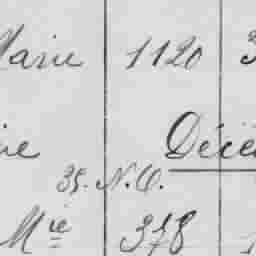 Marie 1120 3
ie Décé
35. N. O.
Mie 378